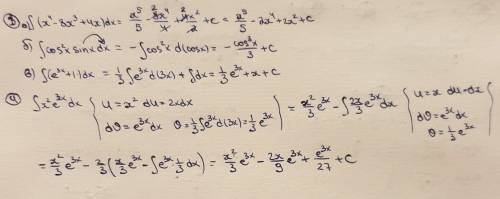 ③ а) ∫(x⁴-8x³+4x)dx = x⁵/5 - 8x⁴/4 + 4x²/2 + c = x⁵/5 - 2x⁴ + 2x² + C
б) ∫cos²x sinx dx = -∫cos²x d(cosx) = -cos³x/3 + C
в) ∫(e³ˣ+1)dx = 1/3 ∫e³ˣd(3x) + ∫dx = 1/3 e³ˣ + x + C
④ ∫x²e³ˣdx { u = x² du = 2xdx dϑ = e³ˣdx ϑ = 1/3 ∫e³ˣd(3x) = 1/3 e³ˣ } = x²/3 e³ˣ - ∫ 2x/3 e³ˣdx { u = x du = dx dϑ = e³ˣdx ϑ = 1/3 e³ˣ
= x²/3 e³ˣ - 2/3 (x/3 e³ˣ - ∫e³ˣ 1/3 dx) = x²/3 e³ˣ - 2x/9 e³ˣ + e³ˣ/27 + C